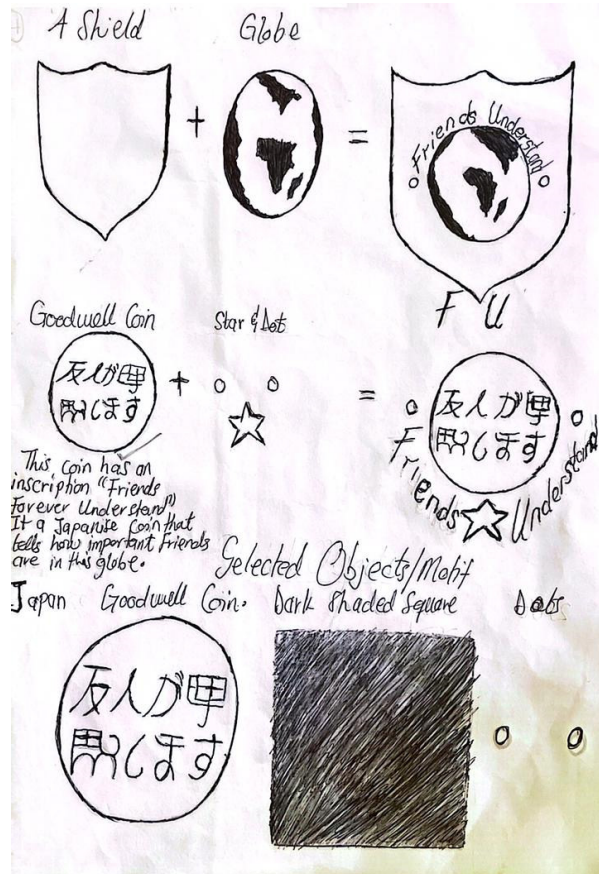 A Shield Globe
+ =
Friends Understand
F U
Goodwell Coin Star & Dot
友人が
します
+ =
友人が
します
Friends Understand
This coin has an
inscription "Friends
Forever Understand"
It a Japanese Coin that
tells how important Friends
are in this globe.
Selected Objects/Motif
Japan Goodwell Coin. Dark Shaded Square Dots
友人が
します